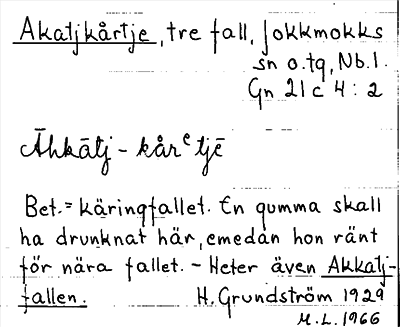 Akatjkårtje, tre fall, Jokkmokks
sn o. tg, Nb. l.
Gn 21 c 4 : 2
Āhkātj - kårᵉtjē
Bet. = käringfallet. En gumma skall
ha drunknat här, emedan hon ränt
för nära fallet. - Heter även Akkatj-
fallen. H. Grundström 1929
M. L. 1966